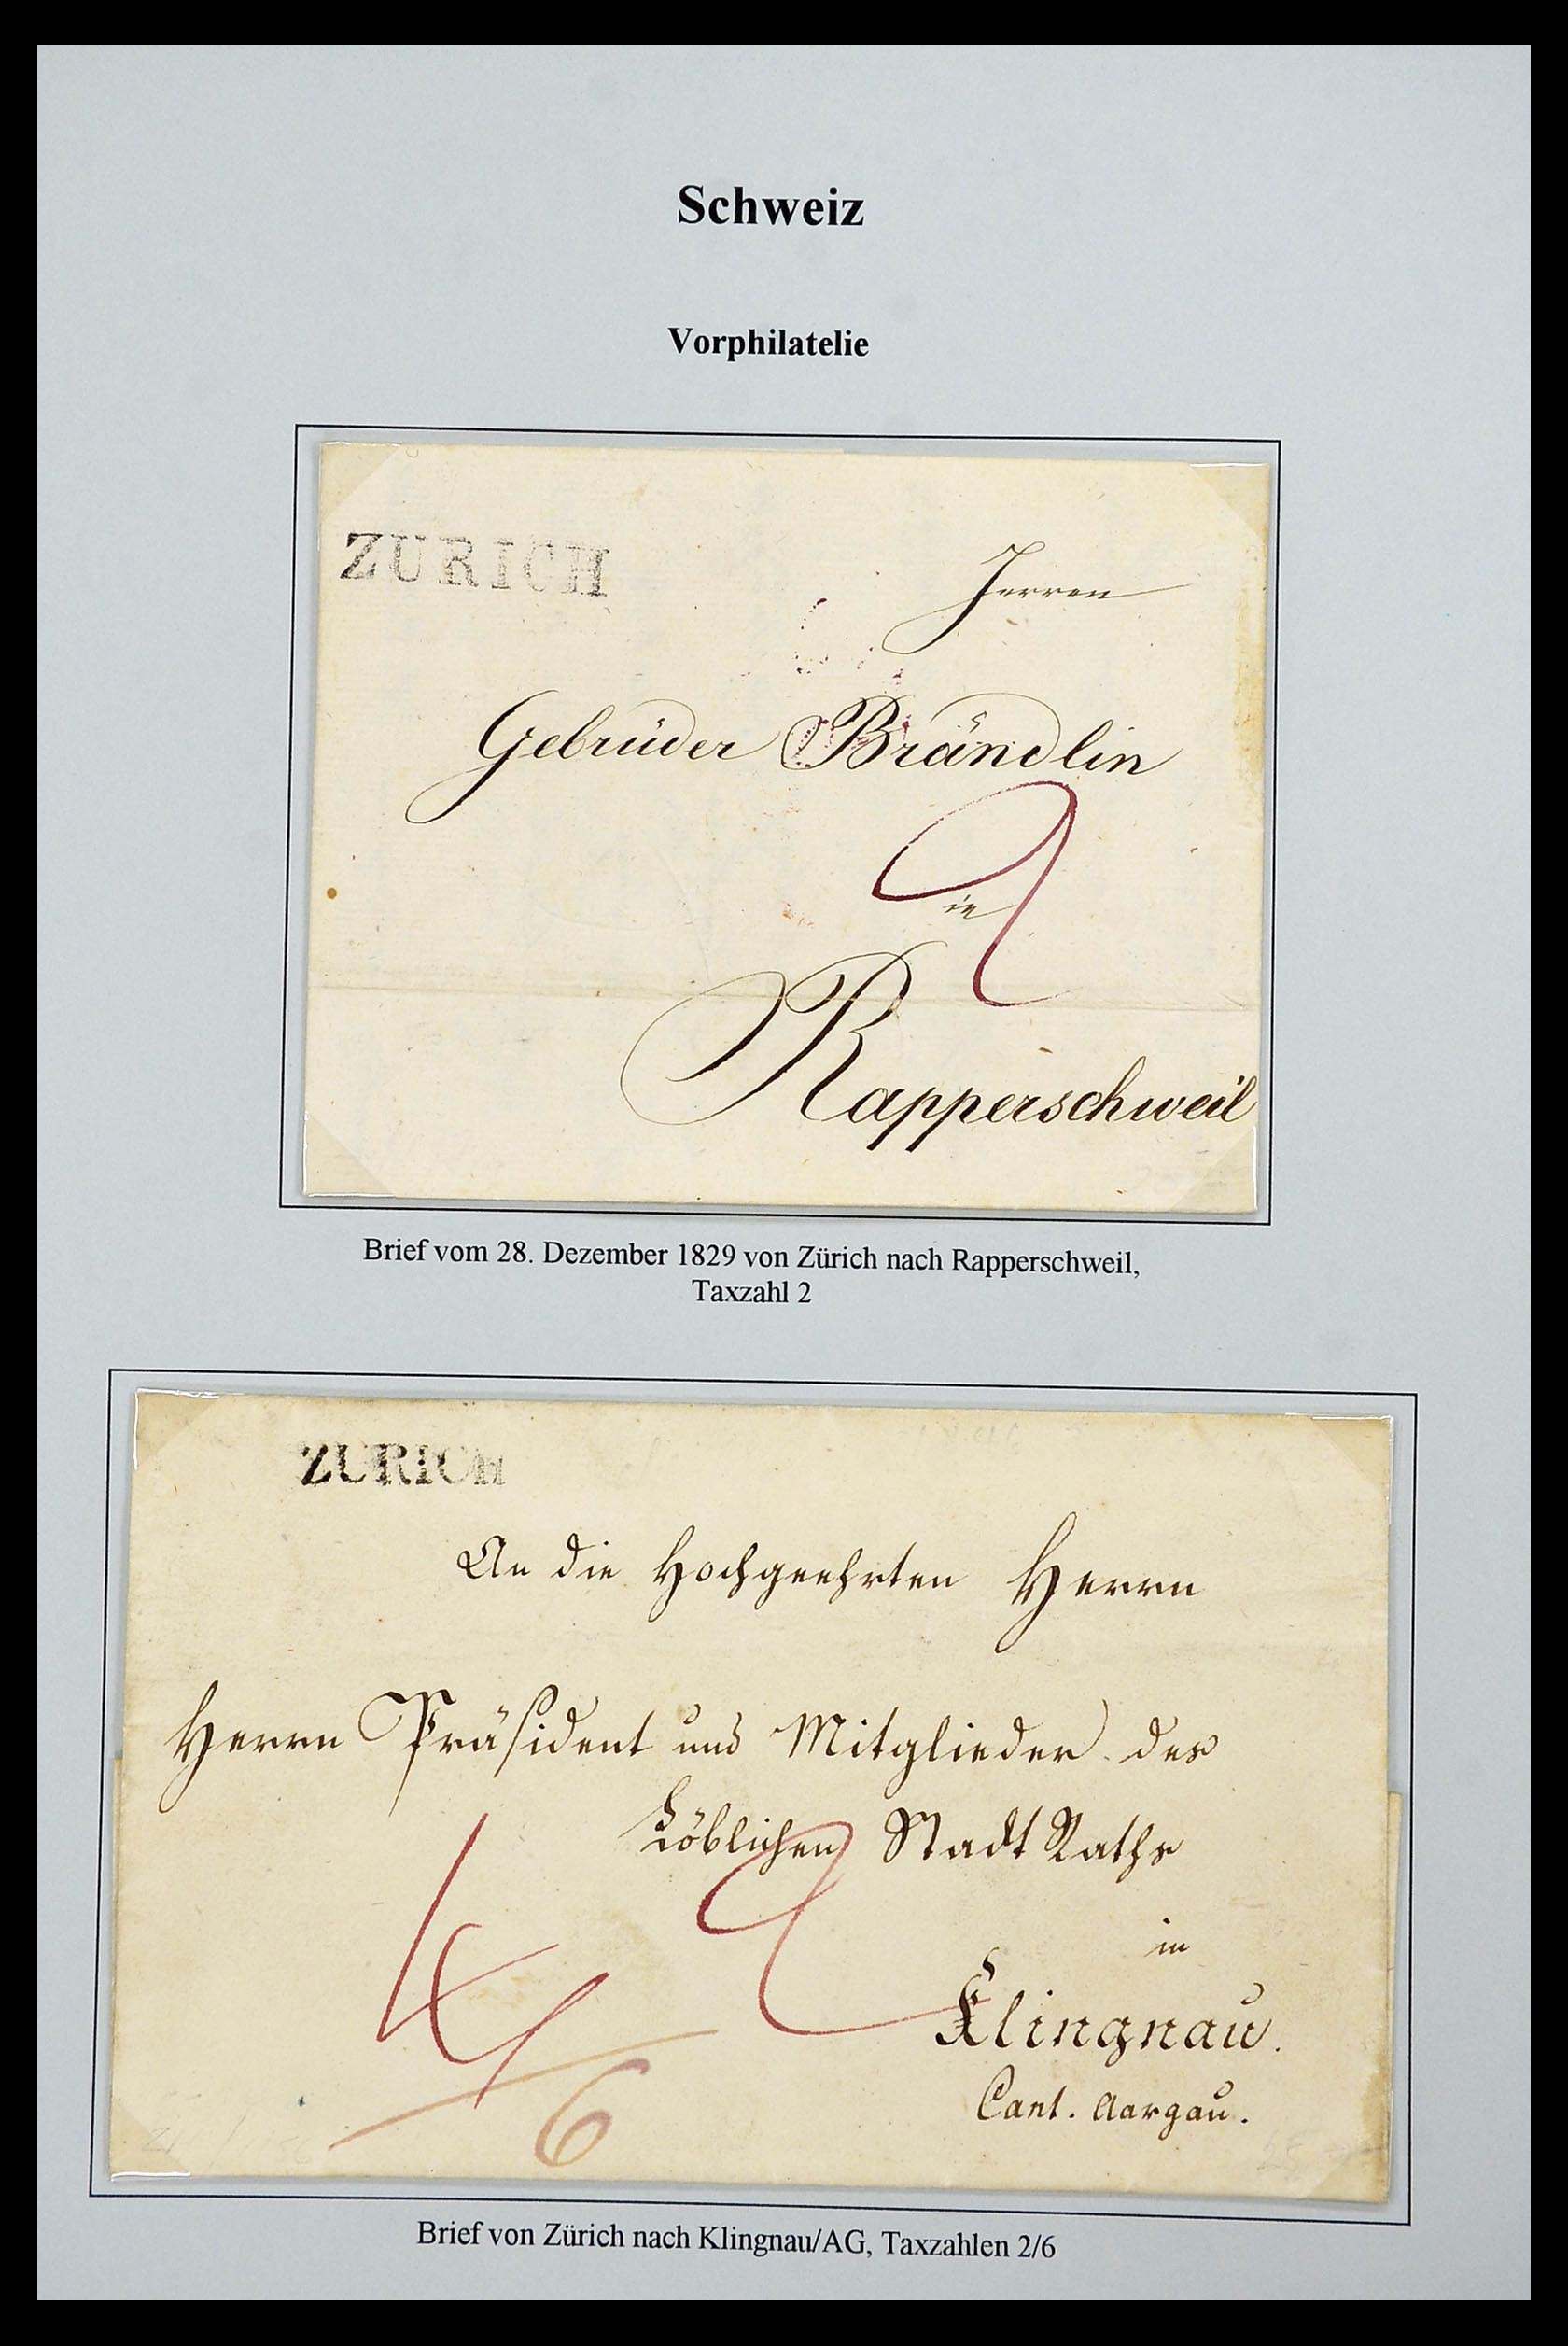 Schweiz
Vorphilatelie
ZURICH
Herren
Gebrüder Brändlin
2
in
Rapperschweil
Brief vom 28. Dezember 1829 von Zürich nach Rapperschweil,
Taxzahl 2
ZURICH
An die Hochgeehrten Herrn
Herrn Präsident und Mitglieder des
Löblichen Stadt Raths
2
in
Klingnau.
Cant. Aargau.
6
Brief von Zürich nach Klingnau/AG, Taxzahlen 2/6